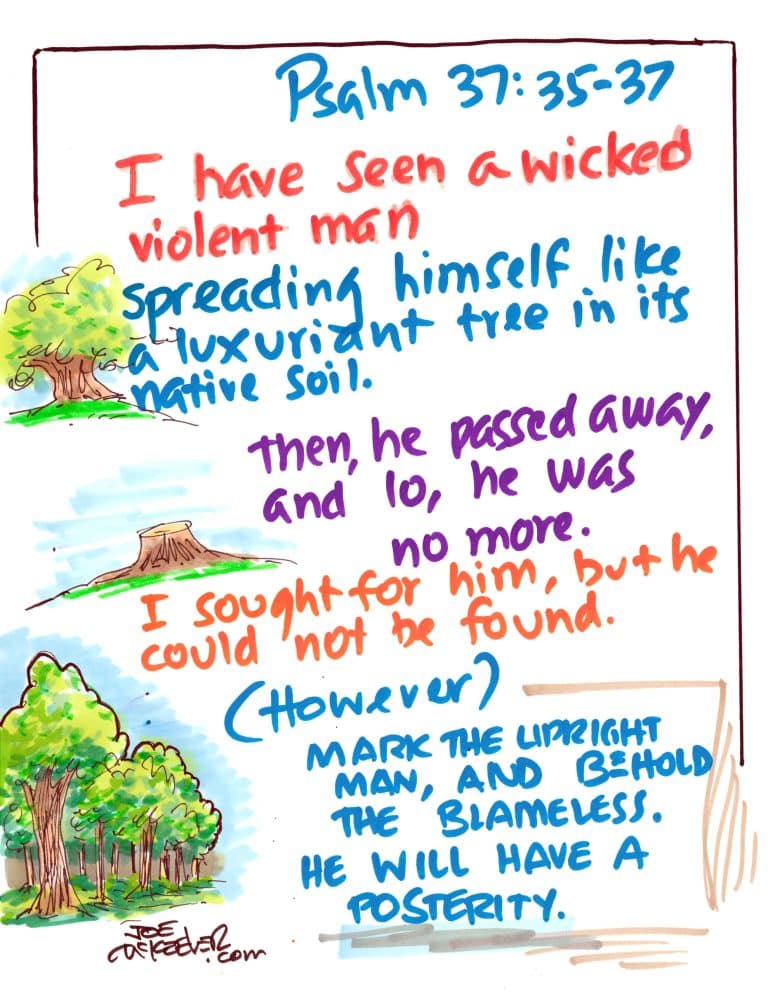 Psalm 37:35-37
I have seen a wicked
violent man
spreading himself like
a luxuriant tree in its
native soil.
then, he passed away,
and lo, he was
no more.
I sought for him, but he
could not be found.
(However)
MARK THE UPRIGHT
MAN, AND BEHOLD
THE BLAMELESS.
HE WILL HAVE A
POSTERITY.
JOE
McKEEVER
.com